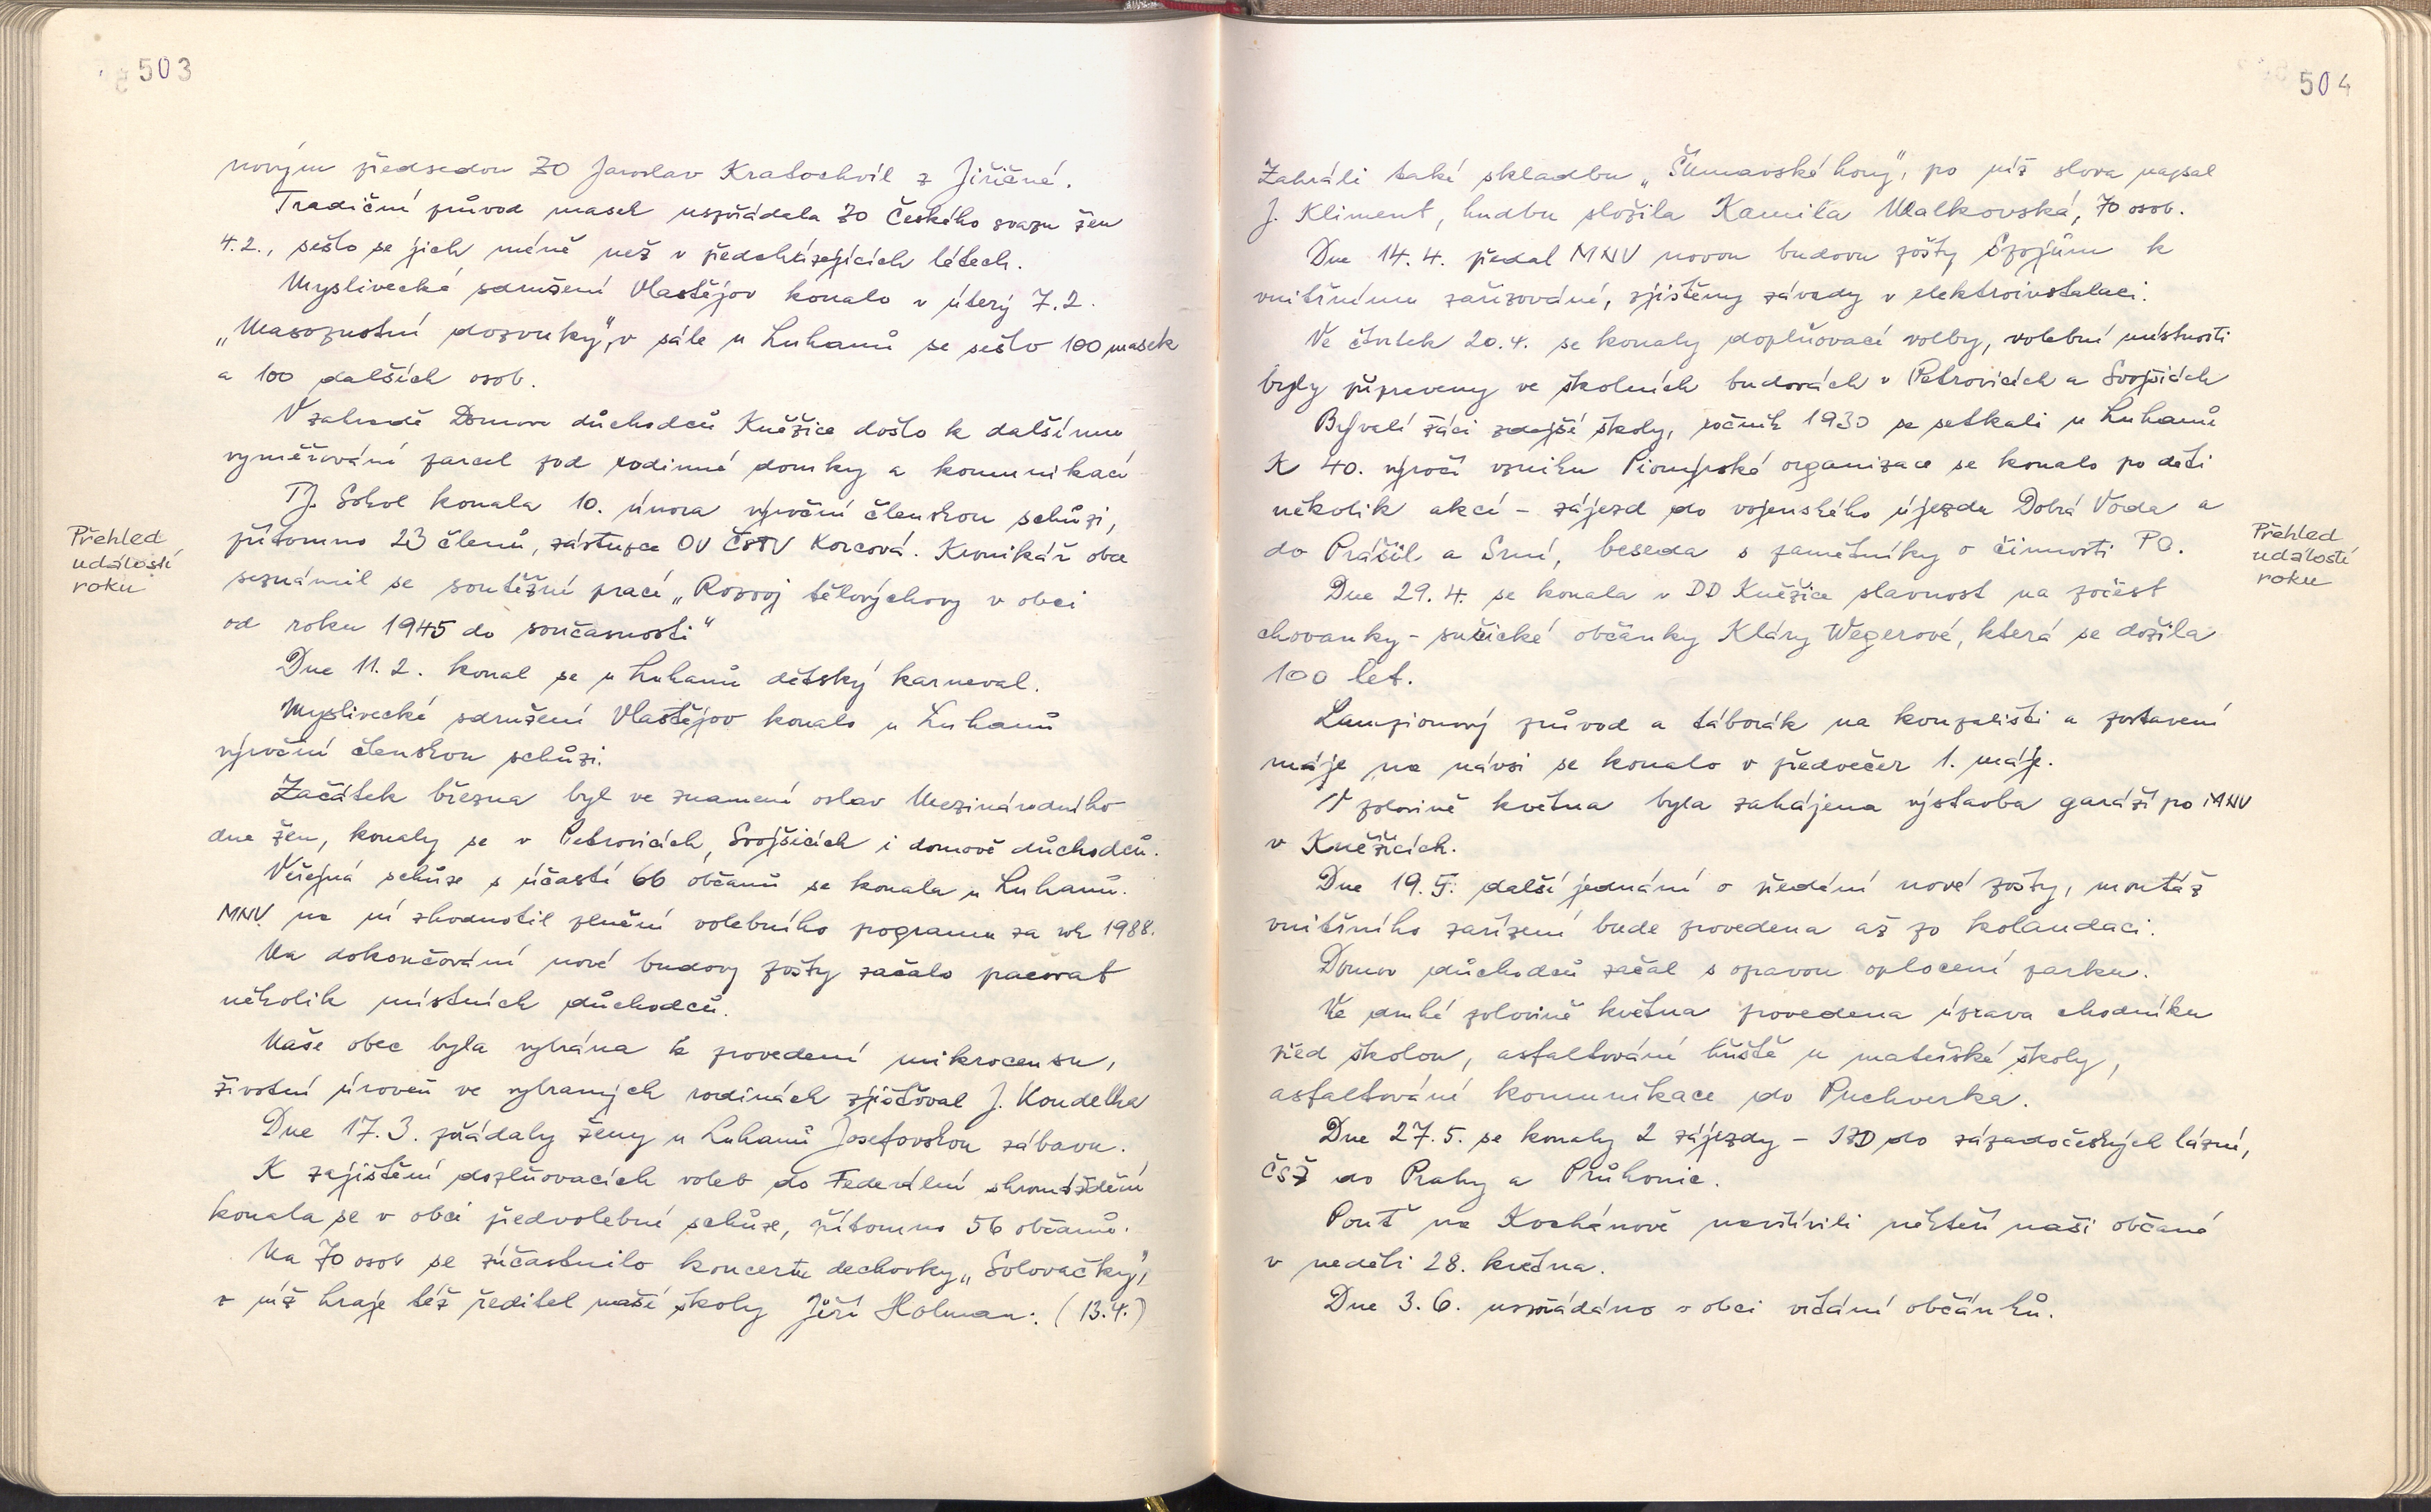 503
novým předsedou ZO Jaroslav Kratochvíl z Jiřičné.
Tradiční průvod masek uspořádala ZO Českého svazu žen
4.2., sešlo se jich méně než v předcházejících létech.
Myslivecké sdružení Vlastějov konalo v úterý 7.2.
„Masopustní dozvuky", v sále u Luhanů se sešlo 100 masek
a 100 dalších osob.
V zahradě Domova důchodců Kněžice došlo k dalšímu
vyměřování parcel pod rodinné domky a komunikací
TJ. Sokol konala 10. února výroční členskou schůzi,
přítomno 23 členů, zástupce OV ČSTV Korcová. Kronikář obce
seznámil se soutěžní prací „Rozvoj tělovýchovy v obci
od roku 1945 do současnosti"
Dne 11.2. konal se u Luhanů dětský karneval.
Myslivecké sdružení Vlastějov konalo u Luhanů
výroční členskou schůzi.
Začátek března byl ve znamení oslav Mezinárodního
dne žen, konaly se v Petrovicích, Svojšicích i domově důchodců.
Veřejná schůze s účastí 66 občanů se konala u Luhanů.
MNV. na ní zhodnotil plnění volebního programu za rok 1988.
Na dokončování nové budovy pošty začalo pracovat
několik místních důchodců.
Naše obec byla vybrána k provedení mikrocensu,
životní úroveň ve vybraných rodinách zjišťoval J. Koudelka
Dne 17.3. pořádaly ženy u Luhanů Josefovskou zábavu.
K zajištění doplňovacích voleb do Federální shromáždění
konala se v obci předvolební schůze, přítomno 56 občanů.
Na 70 osob se zúčastnilo koncertu dechovky „Solovačky",
v níž hraje též ředitel naší školy Jiří Holman. (13.4.)
Přehled
událostí
roku
504
Zahráli také skladbu „Šumavské hony", po níž slova napsal
J. Kliment, hudbu složila Kamila Malkovská, 70 osob.
Dne 14.4. předal MNV novou budovu pošty Spojům k
vnitřnímu zařizování, zjištěny závady v elektroinstalaci.
Ve čtvrtek 20.4. se konaly doplňovací volby, volební místnosti
byly připraveny ve školních budovách v Petrovicích a Svojšicích
Bývalí žáci zdejší školy, ročník 1930 se setkali u Luhanů
K 40. výročí vzniku Pionýrské organizace se konalo po děti
několik akcí - zájezd do vojenského újezda Dobrá Voda a
do Prášil a Srní, beseda s pamětníky o činnosti PO.
Dne 29.4. se konala v DD Kněžice slavnost na počest
chovanky - sušické občanky Kláry Wegerové, která se dožila
100 let.
Lampionový průvod a táborák na koupališti a postavení
máje na návsi se konalo v předvečer 1. máje.
V polovině května byla zahájena výstavba garáží po MNV
v Kněžicích.
Dne 19.5. další jednání o předání nové pošty, montáž
vnitřního zařízení bude provedena až po kolaudaci.
Domov důchodců začal s opravou oplocení parku.
Ve druhé polovině května provedena úprava chodníku
před školou, asfaltování hřiště u mateřské školy,
asfaltování komunikace do Puchverka.
Dne 27.5. se konaly 2 zájezdy - JZD do západočeských lázní,
ČSŽ do Prahy a Průhonic.
Pouť na Kochánově navštívili někteří naši občané
v neděli 28. května.
Dne 3.6. uspořádáno v obci vítání občánků.
Přehled
událostí
roku